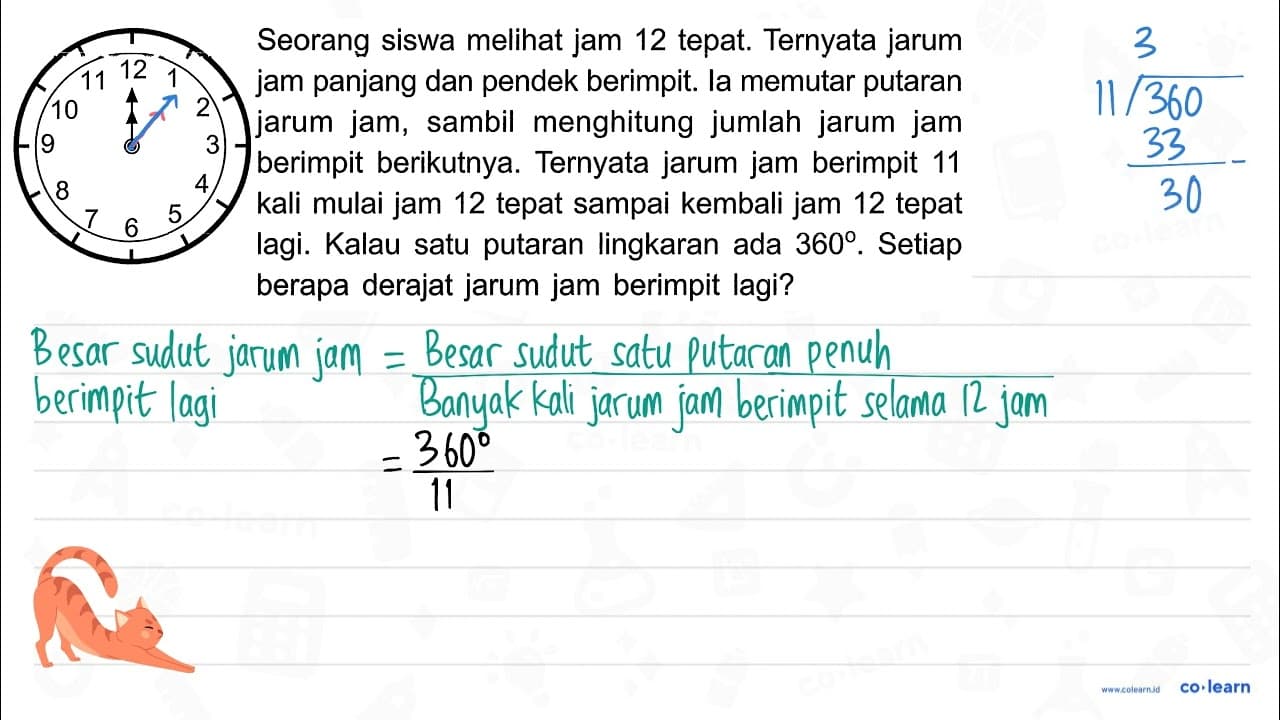 Seorang siswa melihat jam 12 tepat. Ternyata jarum
jam panjang dan pendek berimpit. Ia memutar putaran
jarum jam, sambil menghitung jumlah jarum jam
berimpit berikutnya. Ternyata jarum jam berimpit 11
kali mulai jam 12 tepat sampai kembali jam 12 tepat
lagi. Kalau satu putaran lingkaran ada 360⁰. Setiap
berapa derajat jarum jam berimpit lagi?
12
11
1
10
2
9
3
8
4
7
5
6
3
11 / 360
33 -
30
Besar sudut jarum jam = Besar sudut satu putaran penuh
berimpit lagi Banyak kali jarum jam berimpit selama 12 jam
= 360⁰
11
co·learn
co·learn
co·learn
co·learn
www.colearn.id co·learn